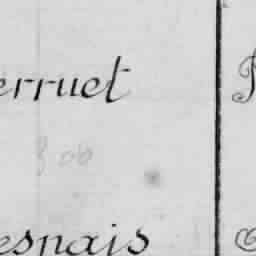 erruet
306
espais